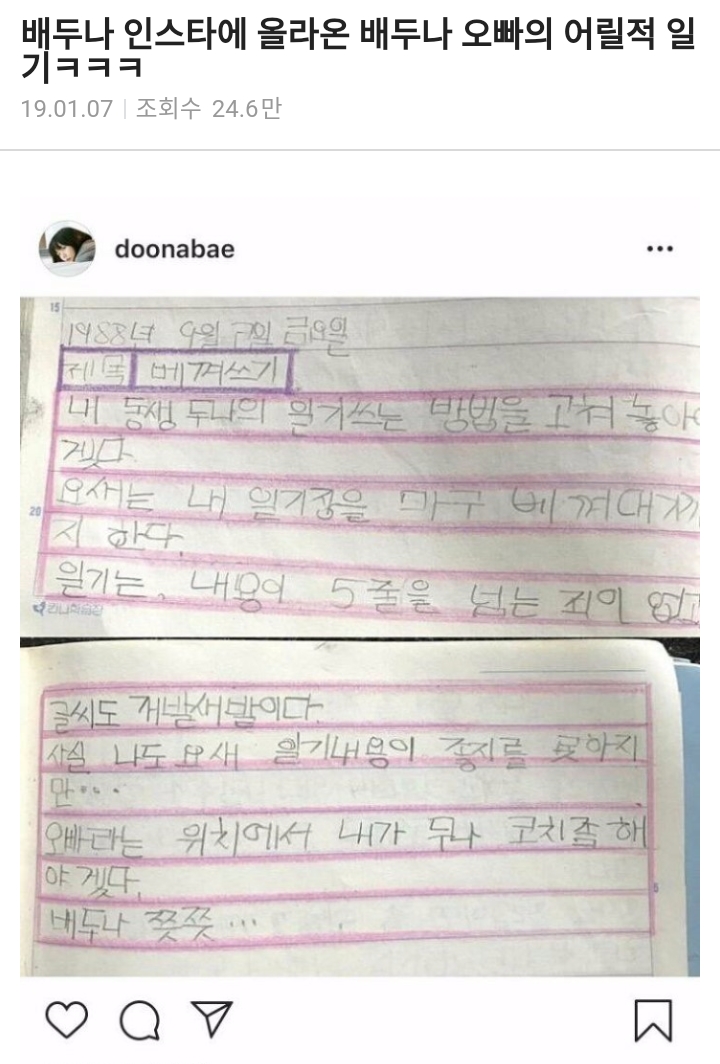 배두나 인스타에 올라온 배두나 오빠의 어릴적 일
기ㅋㅋㅋ
19.01.07 조회수 24.6만
doonabae
15
1988년 9월 2일 금요일
제목 베껴쓰기
내 동생 두나의 일기쓰는 방법을 고쳐 놓아야
겠다.
요새는 내 일기장을 마구 베껴대기까
20
지 한다.
일기는, 내용이 5줄을 넘는 적이 없고
글씨도 개발새발이다.
사실 나도 요새 일기내용이 좋지를 못하지
만...
오빠라는 위치에서 내가 두나 코치좀 해
야 겠다.
배두나 쯧쯧...